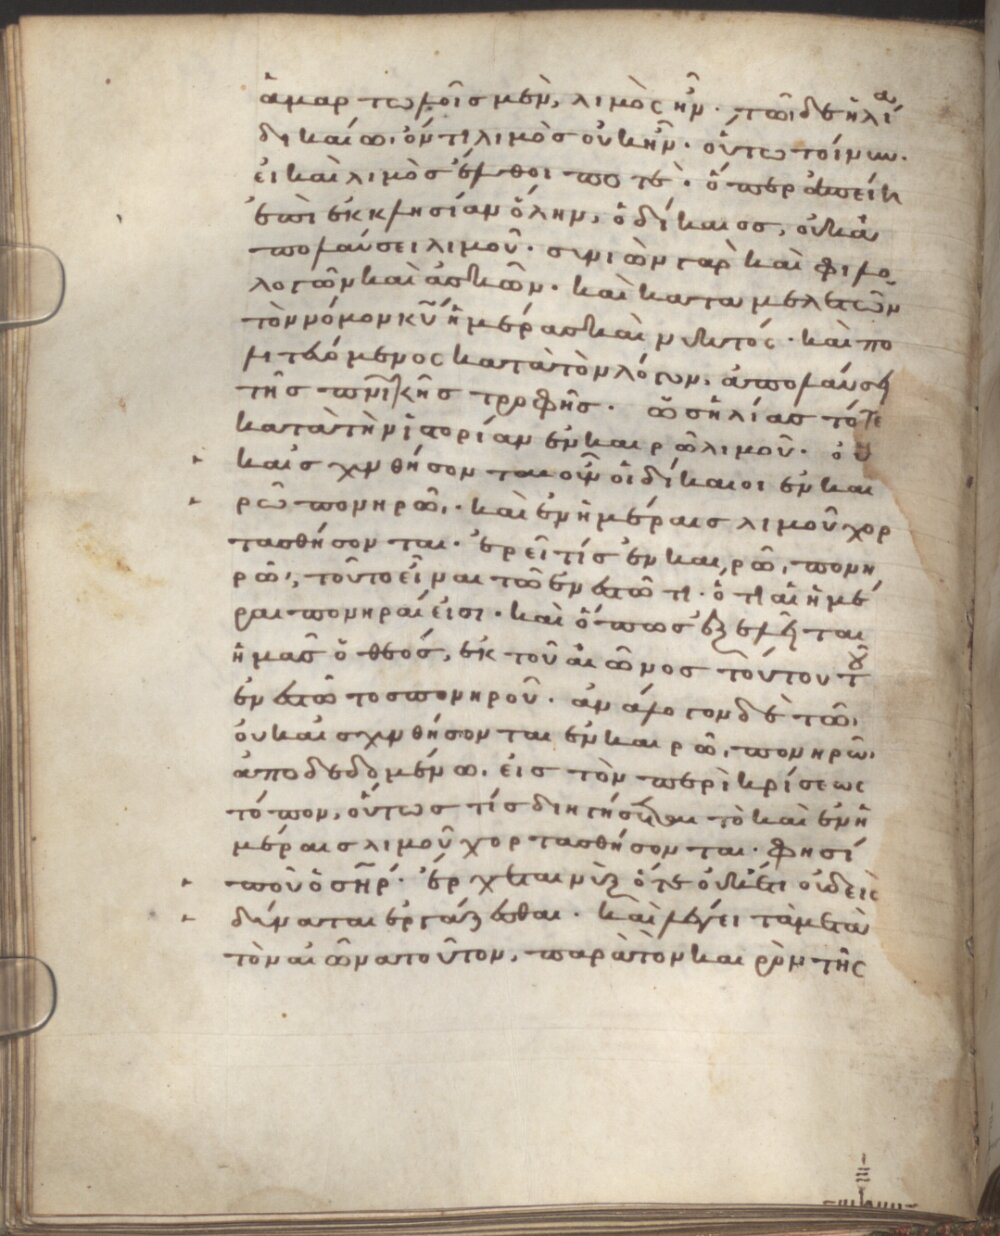 ἁμαρτωλοῖς μὲν, λιμὸς ἦν· τῶι δὲ ἠλίᾳ
δικαίω, ὄντι λιμὸς οὐκ ἦν· οὕτω τοίνυν.
εἰ καὶ λιμὸς ἔλθοι ποτὲ· ὅπερ ἀπείη
ἐπὶ ἐκκλησίαν ὅλην, ὁ δίκαιος, οὐκ ἀ
πολαύσει λιμοῦ· συνιὼν γαρ καὶ φιλο
λογῶν καὶ ἀσκῶν· καὶ καταμελετῶν
τὸν νόμον κυ ἡμέρας καὶ νυκτός· καὶ πο
λιτευόμενος κατὰ τὸν λόγον, ἀπολαύσει
τῆς πνικῆς τροφῆς. ὡς ἠλίας τότε
κατὰ τὴν ἱστορίαν ἐν καιρῶ λιμοῦ· οὐ
καισχυνθήσονται οὖν οἱ δίκαιοι ἐν και
ρῶ πονηρῶ,· καὶ ἐν ἡμέραις λιμοῦ χορ
τασθήσονται· ἐρεῖ τίς ἐν καιρῶ, πονη
ρῶ, τοῦτο εἶναι τῶ ἐνεστῶτι· ὅτι αἱ ἡμέ
ραι πονηραί εἰσι· καὶ ὅπως ἐξέληται
ἡμᾶς ὁ θεός, ἐκ τοῦ αἰῶνος τούτου τοῦ
ἐνεστῶτος πονηροῦ· ἀνάλογον δὲ τῶ,
οὐ καισχυνθήσονται ἐν καιρῶ, πονηρῶ,
ἀποδεδομένω, εἰς τὸν περὶ κρίσεως
τόπον, οὕτως τίς διηγήσεται τὸ καὶ ἐν ἡ
μέραις λιμοῦ χορτασθήσονται· φησί
που ὁ σηρ· ἔρχεται νὺξ ὅτε οὐκέτι οὐδεὶς
δύναται ἐργάζεσθαι· καὶ λέγει τὰ μετὰ
τὸν αἰῶνα τοῦτον, παρὰ τὸν καιρὸν τῆς